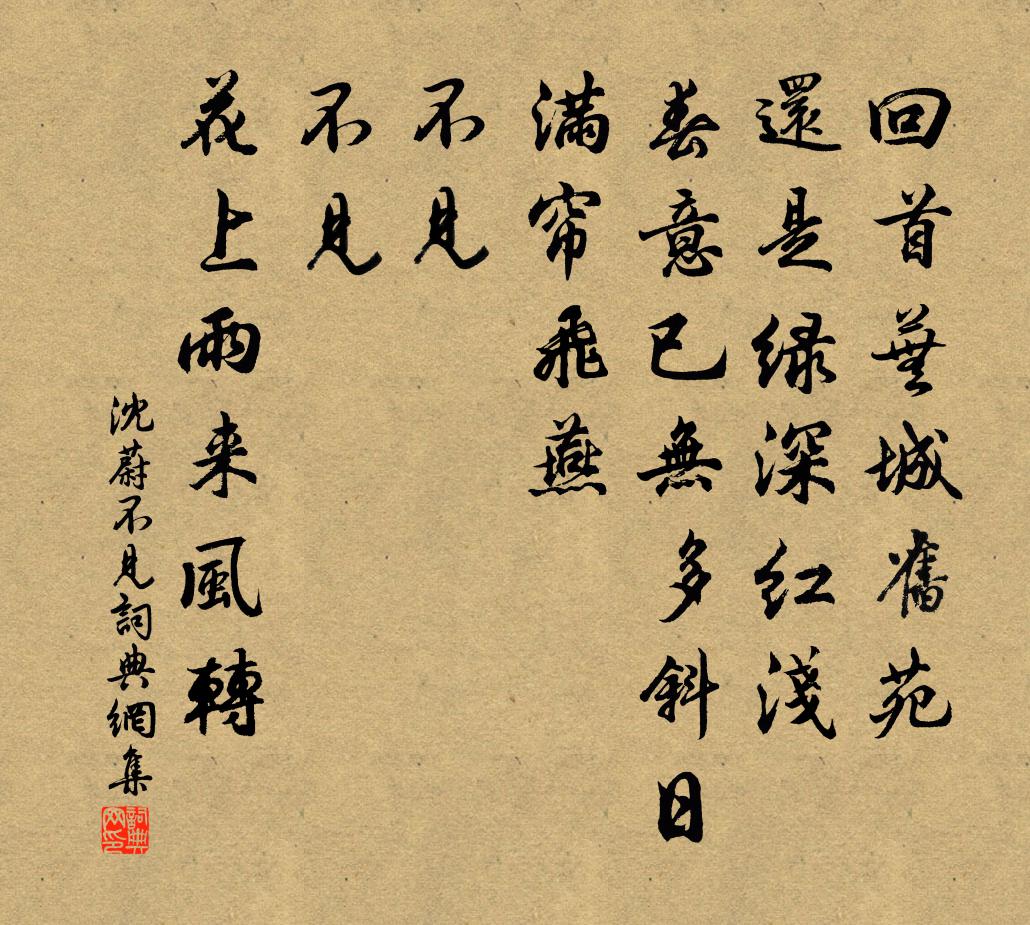 回首蕪城舊苑
還是緑深紅淺
春意已無多斜日
滿帘飛燕
不見
不見
花上雨来風轉
沈蔚不見詞典網集
詞典网印